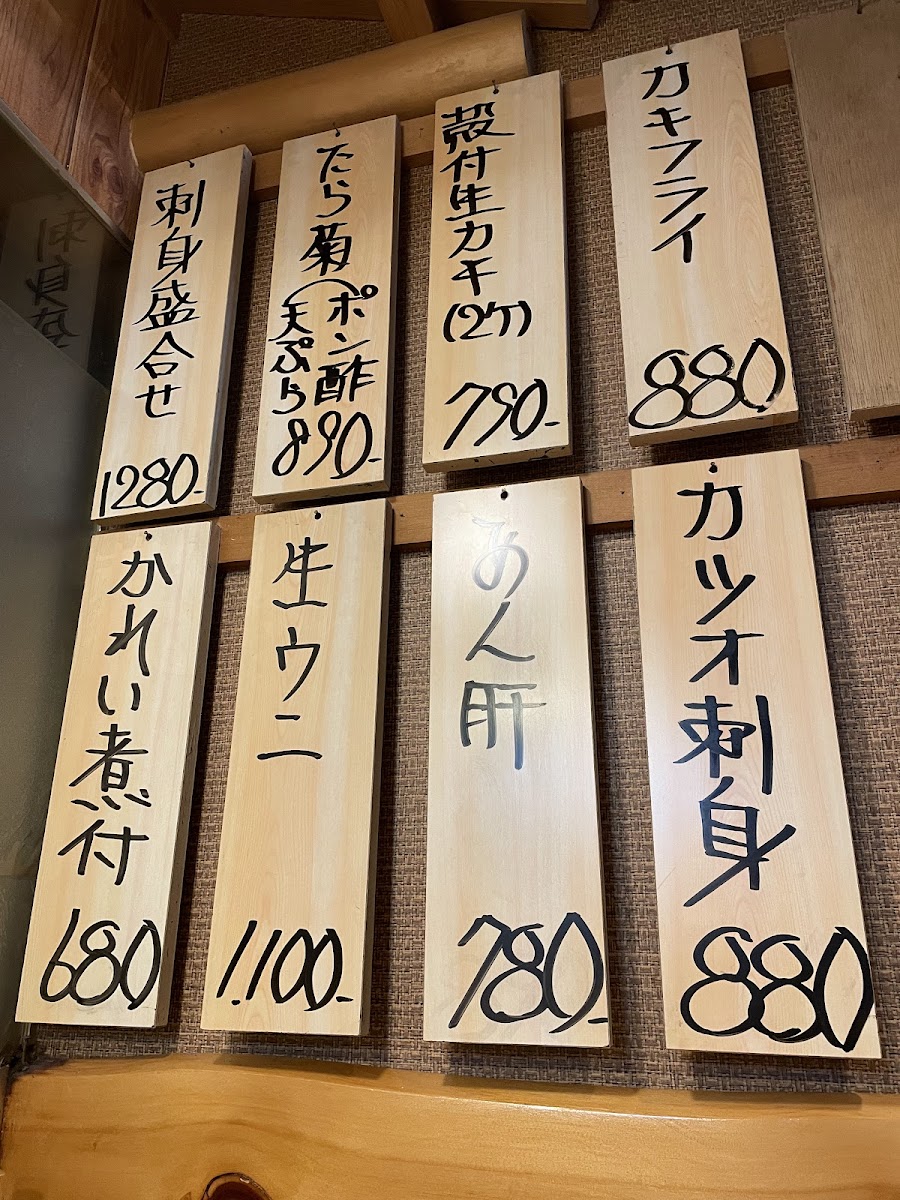 カキフライ
880
殻付生カキ
(2ケ)
790-
たら菊
(ポン酢
天ぷら
890-
刺身盛合せ
1280-
カツオ刺身
880
あん肝
780-
生ウニ
1.100-
かれい煮付
680